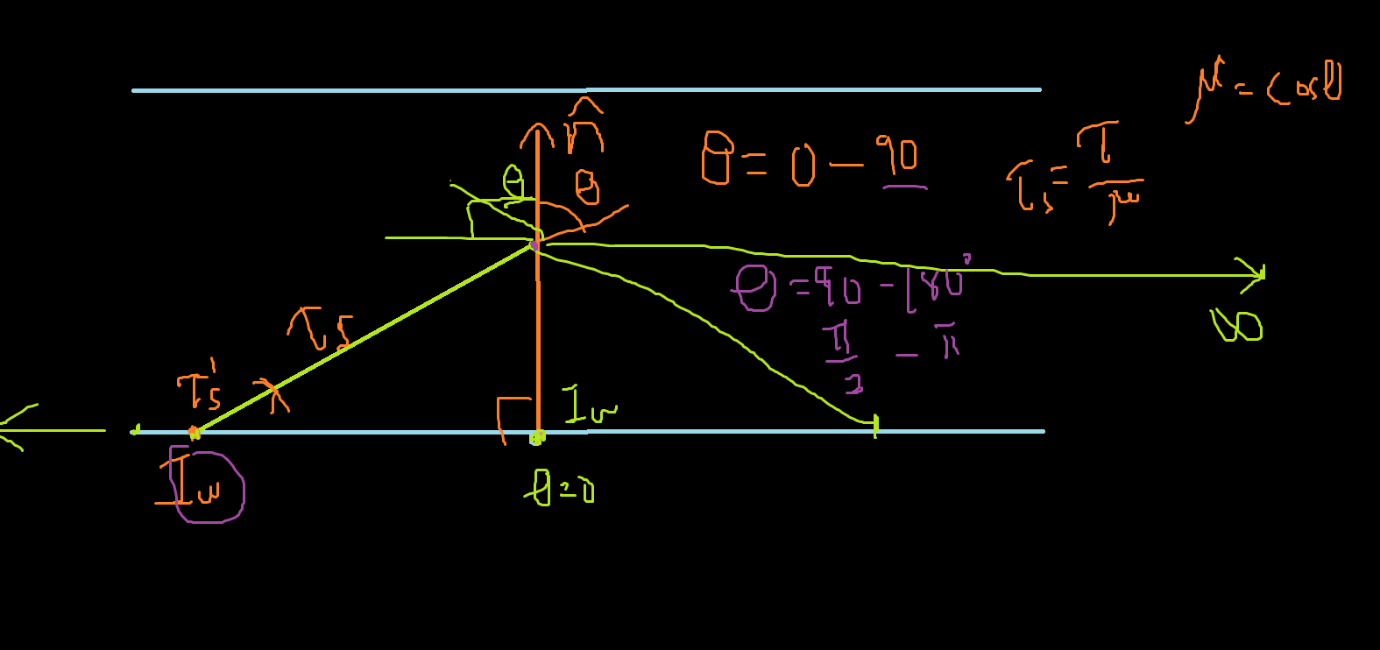 μ = cosθ
n̂
θ = 0 – 90
τs = τ/μ
θ
θ
θ = 90 – 180°
π/2 – π
∞
τs
τ's
Iw
Iw
θ = 0